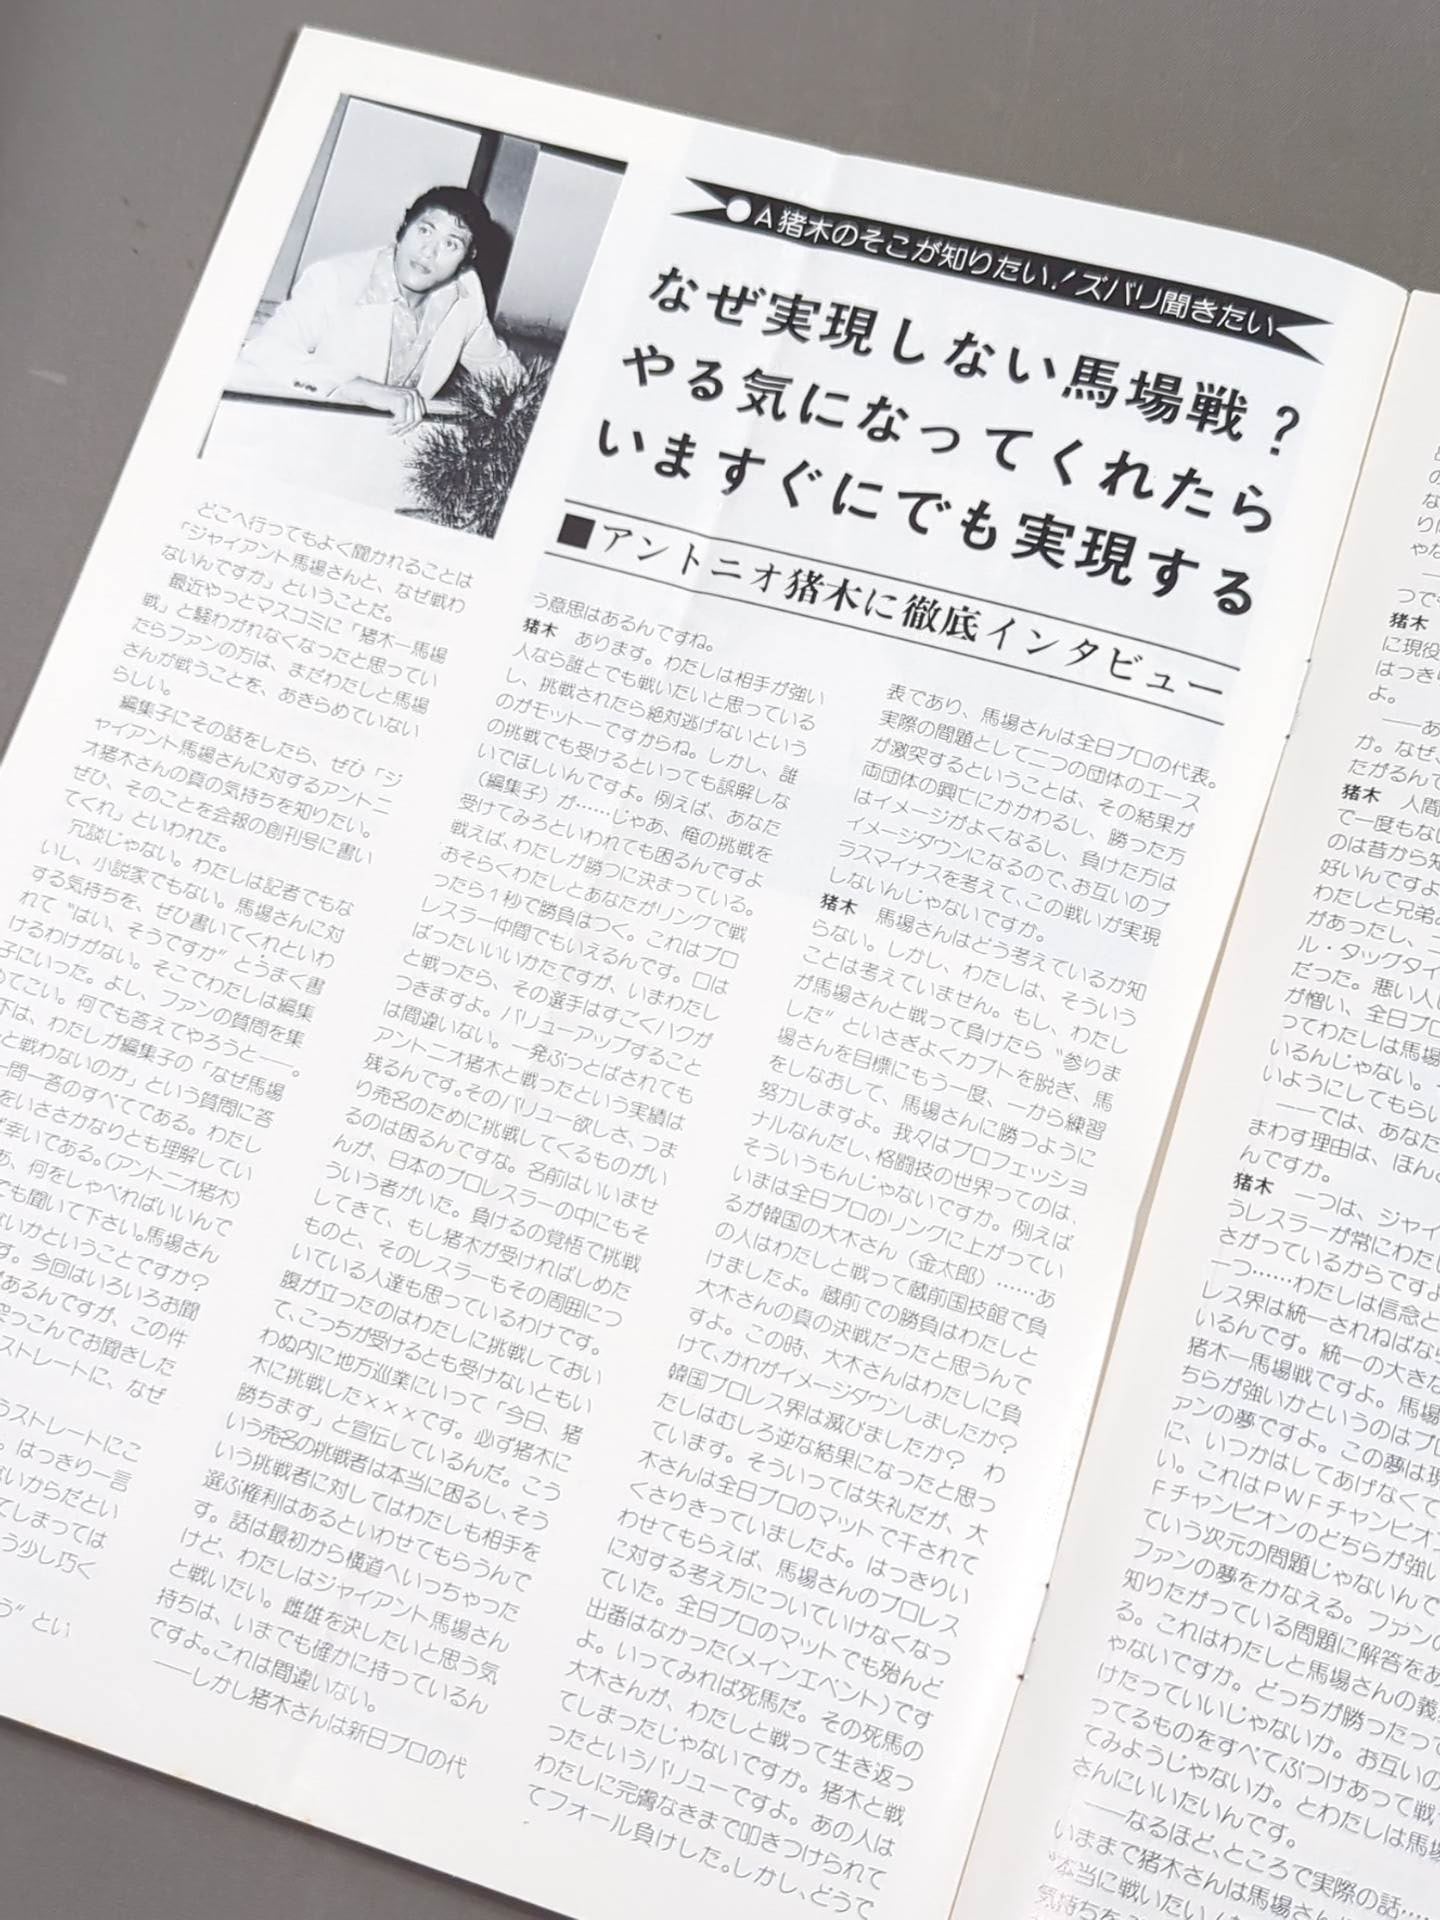 ●A猪木のそこが知りたい!ズバリ聞きたい
なぜ実現しない馬場戦?
やる気になってくれたら
いますぐにでも実現する
■アントニオ猪木に徹底インタビュー
どこへ行ってもよく聞かれることは
「ジャイアント馬場さんと、なぜ戦わ
ないんですか」ということだ。
最近やっとマスコミに「猪木一馬場
戦」と騒わがれなくなったと思ってい
たらファンの方は、まだわたしと馬場
さんが戦うことを、あきらめていない
らしい。
編集子にその話をしたら、ぜひ「ジ
ャイアント馬場さんに対するアントニ
オ猪木さんの真の気持ちを知りたい。
ぜひ、そのことを会報の創刊号に書い
てくれ」といわれた。
冗談じゃない。わたしは記者でもな
いし、小説家でもない。馬場さんに対
する気持ちを、ぜひ書いてくれといわ
れて〝はい、そうですか〟とうまく書
けるわけがない。そこでわたしは編集
子にいった。よし、ファンの質問を集
めてこい。何でも答えてやろうと――。
下は、わたしが編集子の「なぜ馬場
と戦わないのか」という質問に答
一問一答のすべてである。わたし
をいささかなりとも理解してい
幸いである。(アントニオ猪木)
あ、何をしゃべればいいんで
でも聞いて下さい。馬場さん
ないかということですか?
す。今回はいろいろお聞
あるんですが、この件
突っこんでお聞きした
ストレートに、なぜ
うストレートにこ
。はっきり一言
ないからだとい
てしまっては
う少し巧く
う〟とい
う意思はあるんですね。
猪木 あります。わたしは相手が強い
人なら誰とでも戦いたいと思っている
し、挑戦されたら絶対逃げないという
のがモットーですからね。しかし、誰
の挑戦でも受けるといっても誤解しな
いでほしいんですよ。例えば、あなた
(編集子)が……じゃあ、俺の挑戦を
受けてみろといわれても困るんですよ
戦えば、わたしが勝つに決まっている。
おそらくわたしとあなたがリングで戦
ったら1秒で勝負はつく。これはプロ
レスラー仲間でもいえるんです。口は
ばったいいいかたですが、いまわたし
と戦ったら、その選手はすごくハクが
つきますよ。バリューアップすること
は間違いない。一発ぶっとばされても
アントニオ猪木と戦ったという実績は
残るんです。そのバリュー欲しさ、つま
り売名のために挑戦してくるものがい
るのは困るんですな。名前はいいませ
んが、日本のプロレスラーの中にもそ
ういう者がいた。負けるの覚悟で挑戦
してきて、もし猪木が受ければしめた
ものと、そのレスラーもその周囲につ
いている人達も思っているわけです。
腹が立ったのはわたしに挑戦しておい
て、こっちが受けるとも受けないともい
わぬ内に地方巡業にいって「今日、猪
木に挑戦した×××です。必ず猪木に
勝ちます」と宣伝しているんだ。こう
いう売名の挑戦者は本当に困るし、そう
いう挑戦者に対してはわたしも相手を
選ぶ権利はあるといわせてもらうんで
す。話は最初から横道へいっちゃった
けど、わたしはジャイアント馬場さん
と戦いたい。雌雄を決したいと思う気
持ちは、いまでも確かに持っているん
ですよ。これは間違いない。
――しかし猪木さんは新日プロの代
表であり、馬場さんは全日プロの代表。
実際の問題として二つの団体のエース
が激突するということは、その結果が
両団体の興亡にかかわるし、勝った方
はイメージがよくなるし、負けた方は
イメージダウンになるので、お互いのプ
ラスマイナスを考えて、この戦いが実現
しないんじゃないですか。
猪木 馬場さんはどう考えているか知
らない。しかし、わたしは、そういう
ことは考えていません。もし、わたし
が馬場さんと戦って負けたら〝参りま
した〟といさぎよくカブトを脱ぎ、馬
場さんを目標にもう一度、一から練習
をしなおして、馬場さんに勝つように
努力しますよ。我々はプロフェッショ
ナルなんだし、格闘技の世界ってのは、
そういうもんじゃないですか。例えば
いまは全日プロのリングに上がってい
るが韓国の大木さん(金太郎)……あ
の人はわたしと戦って蔵前国技館で負
けましたよ。蔵前での勝負はわたしと
大木さんの真の決戦だったと思うんで
すよ。この時、大木さんはわたしに負
けて、かれがイメージダウンしましたか?
韓国プロレス界は滅びましたか? わ
たしはむしろ逆な結果になったと思っ
ています。そういっては失礼だが、大
木さんは全日プロのマットで干されて
くさりきっていましたよ。はっきりい
わせてもらえば、馬場さんのプロレス
に対する考え方についていけなくなっ
ていた。全日プロのマットでも殆んど
出番はなかった(メインエベント)です
よ。いってみれば死馬だ。その死馬の
大木さんが、わたしと戦って生き返っ
てしまったじゃないですか。猪木と戦
ったというバリューですよ。あの人は
わたしに完膚なきまで叩きつけられて
てフォール負けした。しかし、どうで
の
な
りに
ゃな
つでも
猪木
に現役
はっきり
よ。
――あ
か。なぜ、
たがるんで
猪木 人間
で一度もない
のは昔から知
好いんですよ
わたしと兄弟
があったし、
ル・タックタイ
だった。悪い人
が憎い、全日プロ
ってわたしは馬場
いるんじゃない。
いようにしてもらい
――では、あなた
まわす理由は、ほんと
んですか。
猪木 一つは、ジャイ
うレスラーが常にわたし
さがっているからですよ
一つ……わたしは信念と
レス界は統一されねばなら
いるんです。統一の大きな
猪木一馬場戦ですよ。馬場
ちらが強いかというのはプロ
ァンの夢ですよ。この夢は現
に、いつかはしてあげなくて
い。これはPWFチャンピオン
Fチャンピオンのどちらが強い
ていう次元の問題じゃないんで
ファンの夢をかなえる。ファンの
知りたがっている問題に解答をあ
る。これはわたしと馬場さんの義
ゃないですか。どっちが勝ったって
けたっていいじゃないか。お互いの
ってるものをすべてぶつけあって戦
てみようじゃないか。とわたしは馬場
さんにいいたいんです。
――なるほど、ところで実際の話……
いままで猪木さんは馬場さん
〝本当に戦いたい
気持ちを